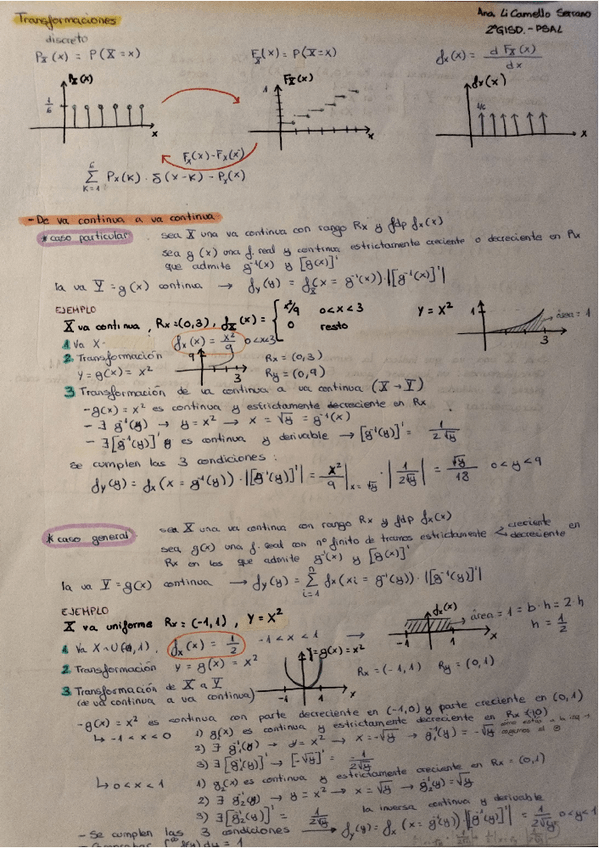 Transformaciones
Ana Li Camello Serrano
2ºGISD. - PSAL
discreto
Px(x) = P(X=x)
Fx(x) = P(X=x)
fx(x) = d Fx(x) / dx
Px(x)
1/6
x
Fx(x)
1
x
fx(x)
1/6
x
Fx(x) - Fx(x-)
6 Σ K=1 Px(K) · δ(x-K) - Px(x)
- De va continua a va continua
* caso particular
sea X una va continua con rango Rx y fdp fx(x)
sea g(x) una f. real y continua estrictamente creciente o decreciente en Rx
que admite g⁻¹(x) y [g(x)]'
la va Y = g(x) continua → fy(y) = fx(x = g⁻¹(x)) · |[g⁻¹(x)]'|
EJEMPLO
X va continua, Rx = (0,3), fx(x) = { x²/9 0<x<3
0 resto
Y = X²
1
área = 1
3
1 Va X · fx(x) = x²/9 0<x<3
2 Transformación
y = g(x) = x²
9
3
Rx = (0,3)
Ry = (0,9)
3 Transformación de va continua a va continua (X → Y)
- g(x) = x² es continua y estrictamente decreciente en Rx
- ∃ g⁻¹(y) → y = x² → x = √y = g⁻¹(x)
- ∃ [g⁻¹(y)]' y es continua y derivable → [g⁻¹(y)]' = 1/2√y
se cumplen las 3 condiciones :
fy(y) = fx(x = g⁻¹(y)) · |[g⁻¹(y)]'| = x²/9 |x=√y · |1/2√y| = √y/18 0<y<9
* caso general
sea X una va continua con rango Rx y fdp fx(x)
sea g(x) una f. real con nº finito de tramos estrictamente < creciente
decreciente en
Rx en los que admite g⁻¹(x) y [g(x)]'
la va Y = g(x) continua → fy(y) = n Σ i=1 fx(xi = g⁻¹(y)) · |[g⁻¹(y)]'|
EJEMPLO
X va uniforme Rx = (-1,1), Y = X²
1 Va X ~ U(-1,1), fx(x) = 1/2 -1<x<1 →
fx(x)
-1 1
área = 1 = b · h = 2 · h
h = 1/2
2 Transformación y = g(x) = x²
y = g(x) = x²
-1 1 x
Rx = (-1,1) Ry = (0,1)
3 Transformación de X a Y
(de va continua a va continua)
- g(x) = x² es continua con parte decreciente en (-1,0) y parte creciente en (0,1)
↳ -1<x<0 1) g(x) es continua y estrictamente decreciente en Rx
2) ∃ g⁻¹(y) → y = x² → x = -√y → g⁻¹(y) = -√y
3) ∃ [g⁻¹(y)]' → [-√y]' = -1/2√y
↳ 0<x<1 1) g₂(x) es continua y estrictamente creciente en Rx = (0,1)
2) ∃ g₂⁻¹(y) → y = x² → x = √y → g₂⁻¹(y) = √y
3) ∃ [g₂⁻¹(y)]' = 1/2√y la inversa continua y derivable
- Se cumplen las 3 condiciones → fy(y) = fx(x = g⁻¹(y)) · |[g⁻¹(y)]'| = 1/2√y 0<y<1